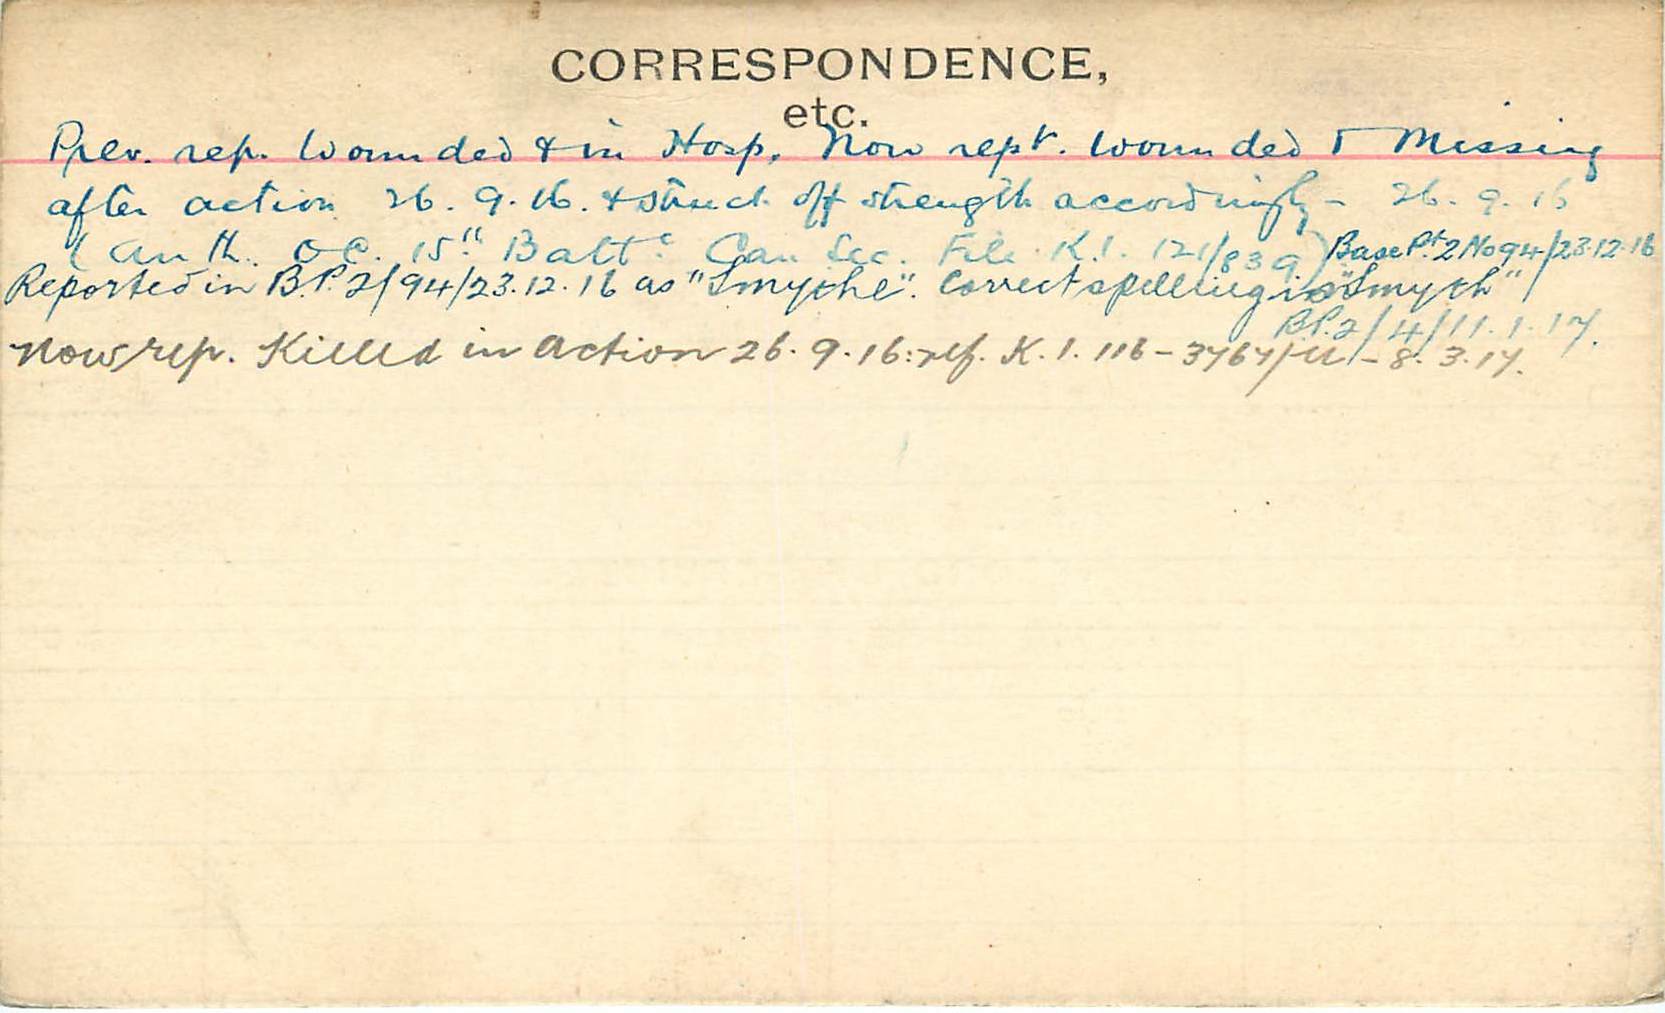 CORRESPONDENCE,
etc.
Prev. rep. Wounded & in Hosp. Now rept. wounded & Missing
after action 26.9.16. & struck off strength accordingly - 26.9.16
(Auth. O.C. 15th Battn. Can Sec. File K.1. 121/839.) Base Pt. 2 No 94/23.12.16
Reported in B.P. 2/94/23.12.16 as "Smythe". Correct spelling is "Smyth"
B.P. 2/4/11.1.17.
Now rep. Killed in Action 26.9.16: ref. K.1. 116-3767/ - 8.3.17.